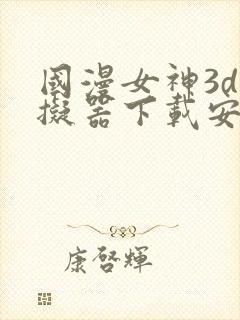 國漫女神3d
擬器下載安
康啓輝